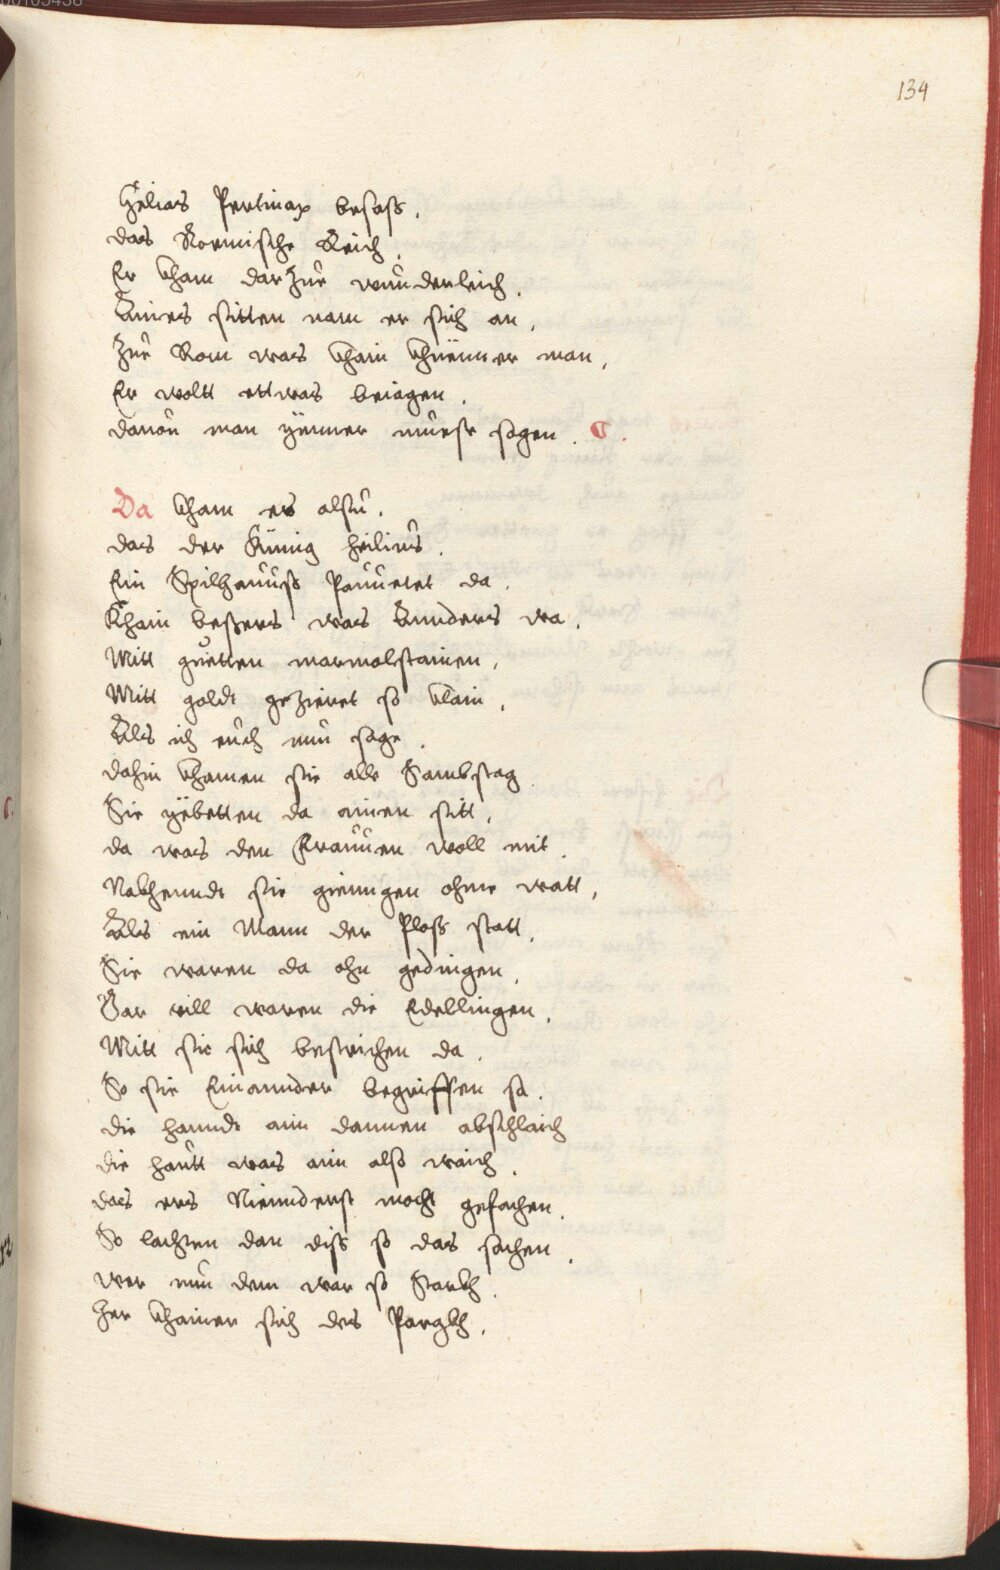 134
Helias Pertinax besass.
das Roemische Reich.
Er kham dar Zue wunderleich.
Aines sitten nam er sich an,
Zue Rom was khain khuenner man,
Er wolt ettwas beiagen.
dauon man ymmer muess sagen.
Da kham es alsu.
das der Künig Heilius.
Ein Spilhauuss Pauuetet da.
Khain bessers was Annders wa.
Mitt guetten marmolstainen,
Mitt goldt gezieret so klain,
Als ich euch nun sage.
dahin khamen sie alle Sambstag
Sie yebetten da ainen sitt,
da was den Frauuen woll mit.
Nakhenndt sie giengen ohne watt,
Als ein Mann der Ploss statt.
Sie waren da ohn gedingen,
Gar vill waren die Edellingen,
Mitt sie sich bestrichen da.
So sie Einannder begriffen sa.
die hanndt aim dannen abschlaich
die hautt was aim also waich.
das ers Niemderst mocht gefachen.
So lachten dan diss so das sachen.
wer nun dem war so Starkh.
Her khainer sich des Pargkh.